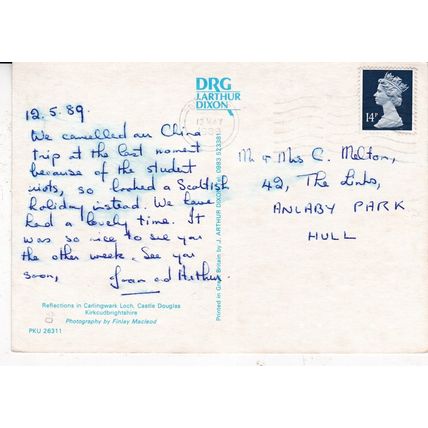 DRG
J.ARTHUR
DIXON
12 MAY
14P
12.5.89.
We cancelled our China
trip at the last moment
because of the student
riots, so booked a Scottish
holiday instead. We have
had a lovely time. It
was so nice to see you
the other week. See you
soon, Joan and Arthur.
Reflections in Carlingwark Loch, Castle Douglas
Kirkcudbrightshire
Photography by Finlay Macleod
PKU 26311
Printed in Great Britain by J. ARTHUR DIXON
Mr & Mrs C. Melton,
42, The Links,
ANLABY PARK
HULL